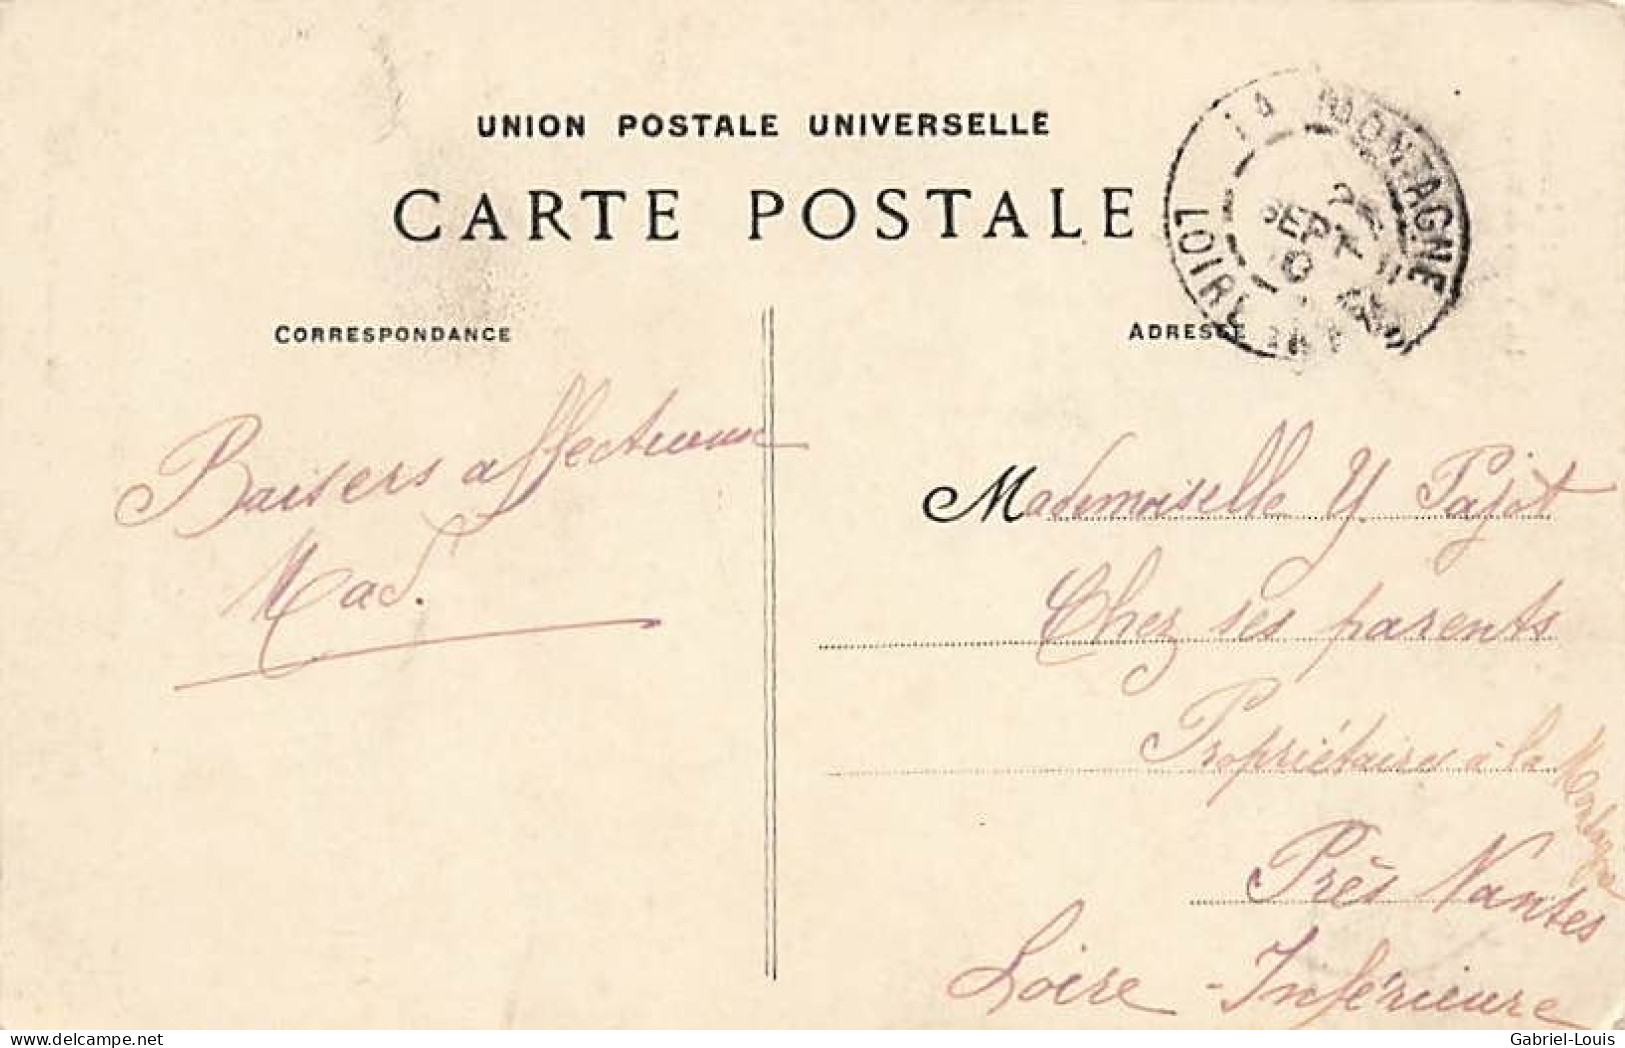 UNION POSTALE UNIVERSELLE
CARTE POSTALE
LA MONTAGNE
SEPT
LOIRE
CORRESPONDANCE
ADRESSE
Baisers affectueux
Mad.
Mademoiselle Y. Pajot
Chez ses parents
Propriétaire à la Montagne
Près Nantes
Loire-Inférieure
Gabriel-Louis